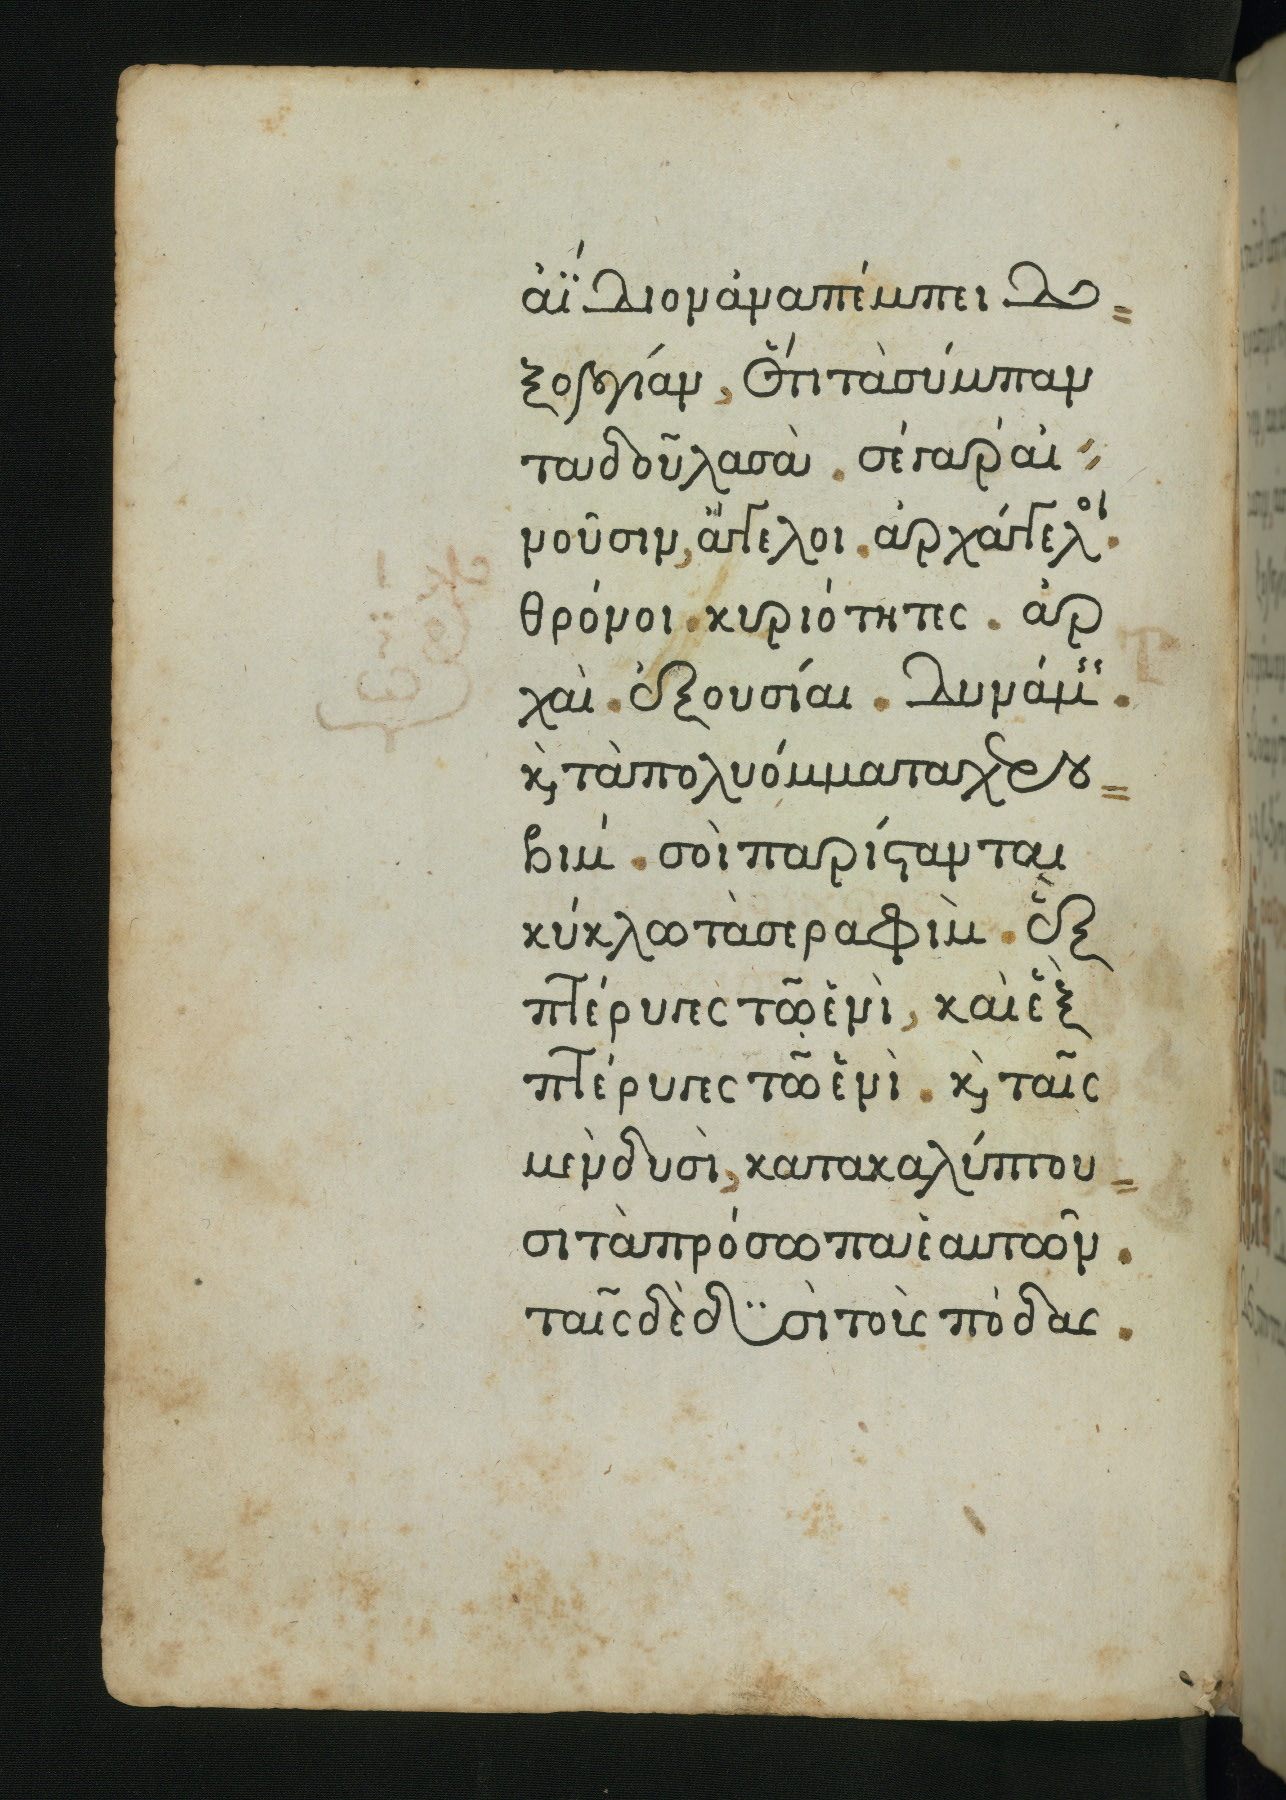 ἀΐδιον ἀναπέμπει δο=
ξολογίαν, ὅτι τὰ σύμπαν
τα δοῦλα σά. σὲ γὰρ αἰ
νοῦσιν, ἄγγελοι. ἀρχάγγελοι.
θρόνοι. κυριότητες. ἀρ
χαὶ. ἐξουσίαι. δυνάμεις.
κ, τὰ πολυόμματα χερου=
βίμ. σοὶ παρίστανται
κύκλω τὰ σεραφὶμ. ἓξ
πτέρυγες τῶ ἑνὶ, καὶ ἓξ
πτέρυγες τῶ ἑνὶ. κ, ταῖς
μὲν δυσὶ, κατακαλύπτου=
σι τὰ πρόσωπα ἑαυτῶν.
ταῖς δὲ δυσὶ τοὺς πόδας.